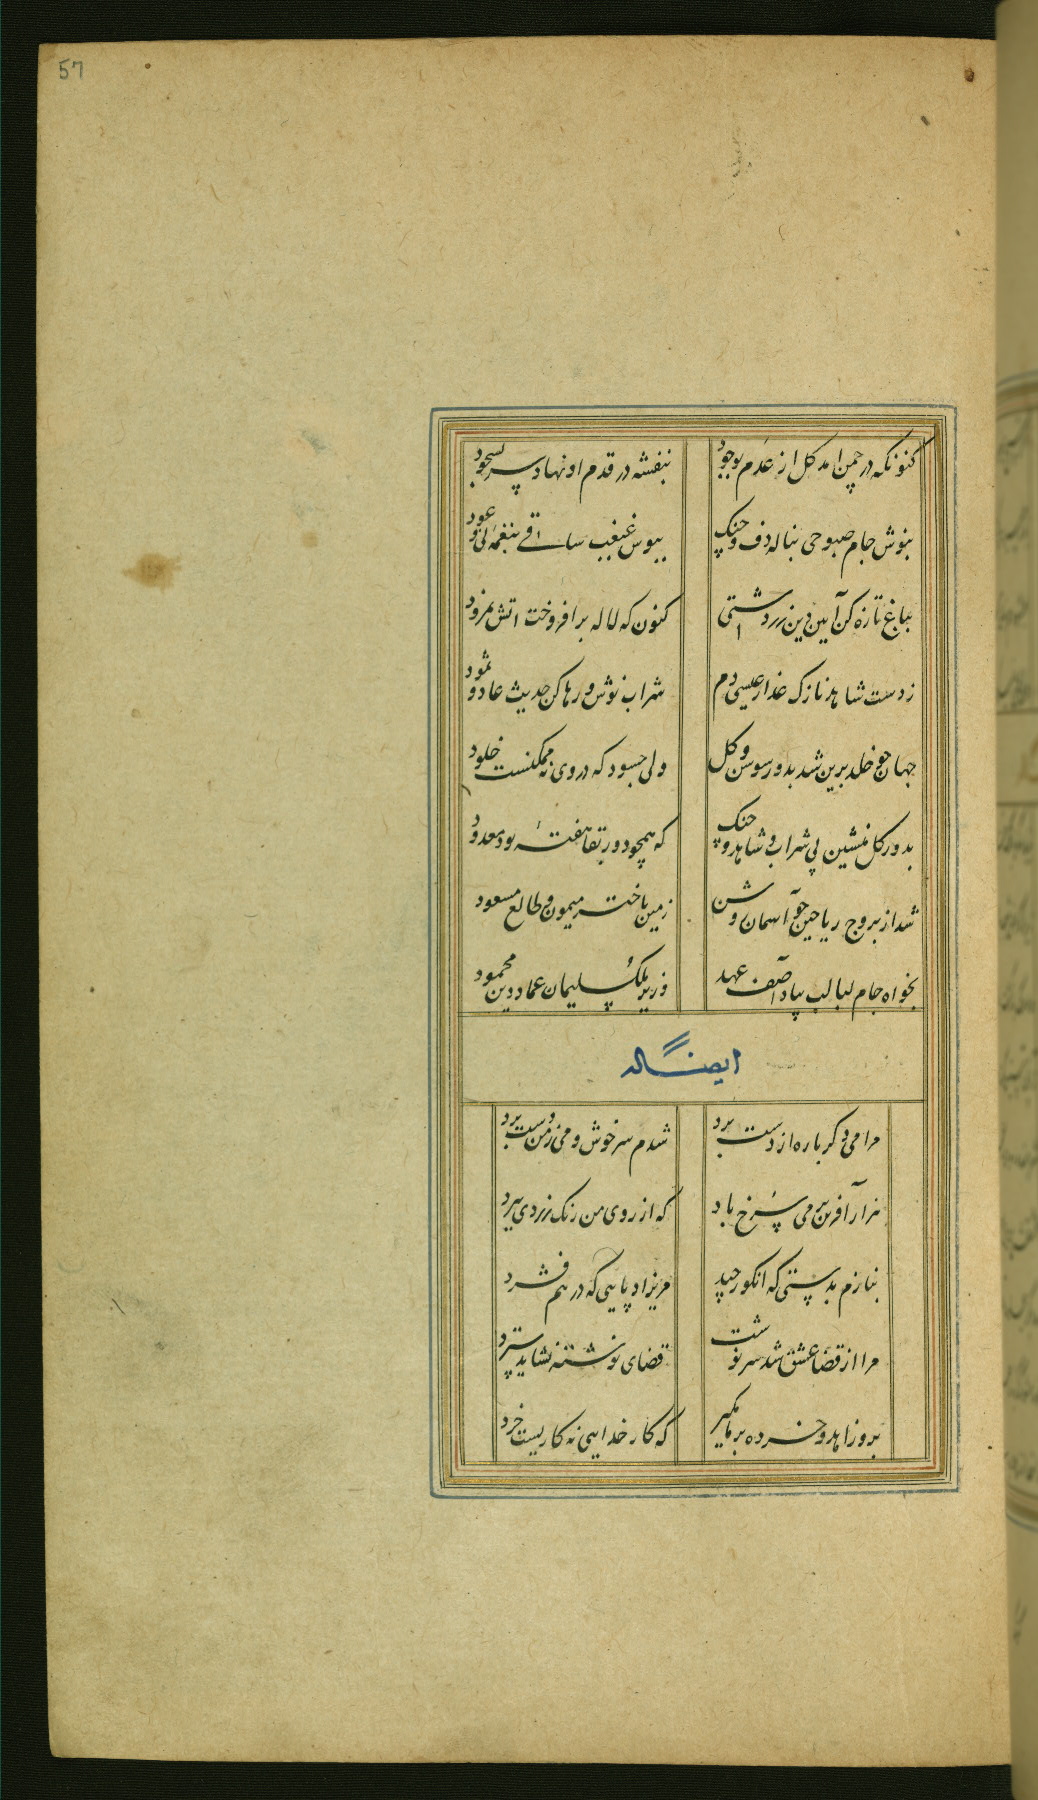 57
کنونکه در چمن امد کل از عدم بوجود بنفشه در قدم او نهاد سر بسجود
بنوش جام صبوحی بناله دف و چنک ببوس غبغب ساقی بنغمهٔ نی و عود
بباغ تازه کن آیین دین زردشتی کنون که لاله برافروخت اتش نمرود
ز دست شاهد نازک عذار عیسی دم شراب نوش و رها کن حدیث عاد و ثمود
جهان چو خلد برین شد بدور سوسن و کل ولی چسود که در وی نه ممکنست خلود
بدور کل منشین بی شراب و شاهد و چنک که همچو دور بقا هفتهٔ بود معدود
شد از بروج ریاحین چو آسمان روشن زمین باختر میمون و طالع مسعود
بخواه جام لبالب بیاد آصف عهد وزیر ملک سلیمان عماد دین محمود
ایضاله
مرا می دکر باره از دست برد شدم سرخوش و می ز من دست برد
هزار آفرین بر می سرخ باد که از روی من رنک زردی ببرد
بنازم بدستی که انکور چید مریزاد پایی که در هم فشرد
مرا از قضا عشق شد سرنوشت قضای نوشته نشاید سترد
برو زاهد و خرده بر ما مکیر که کار خدایی نه کاریست خرد